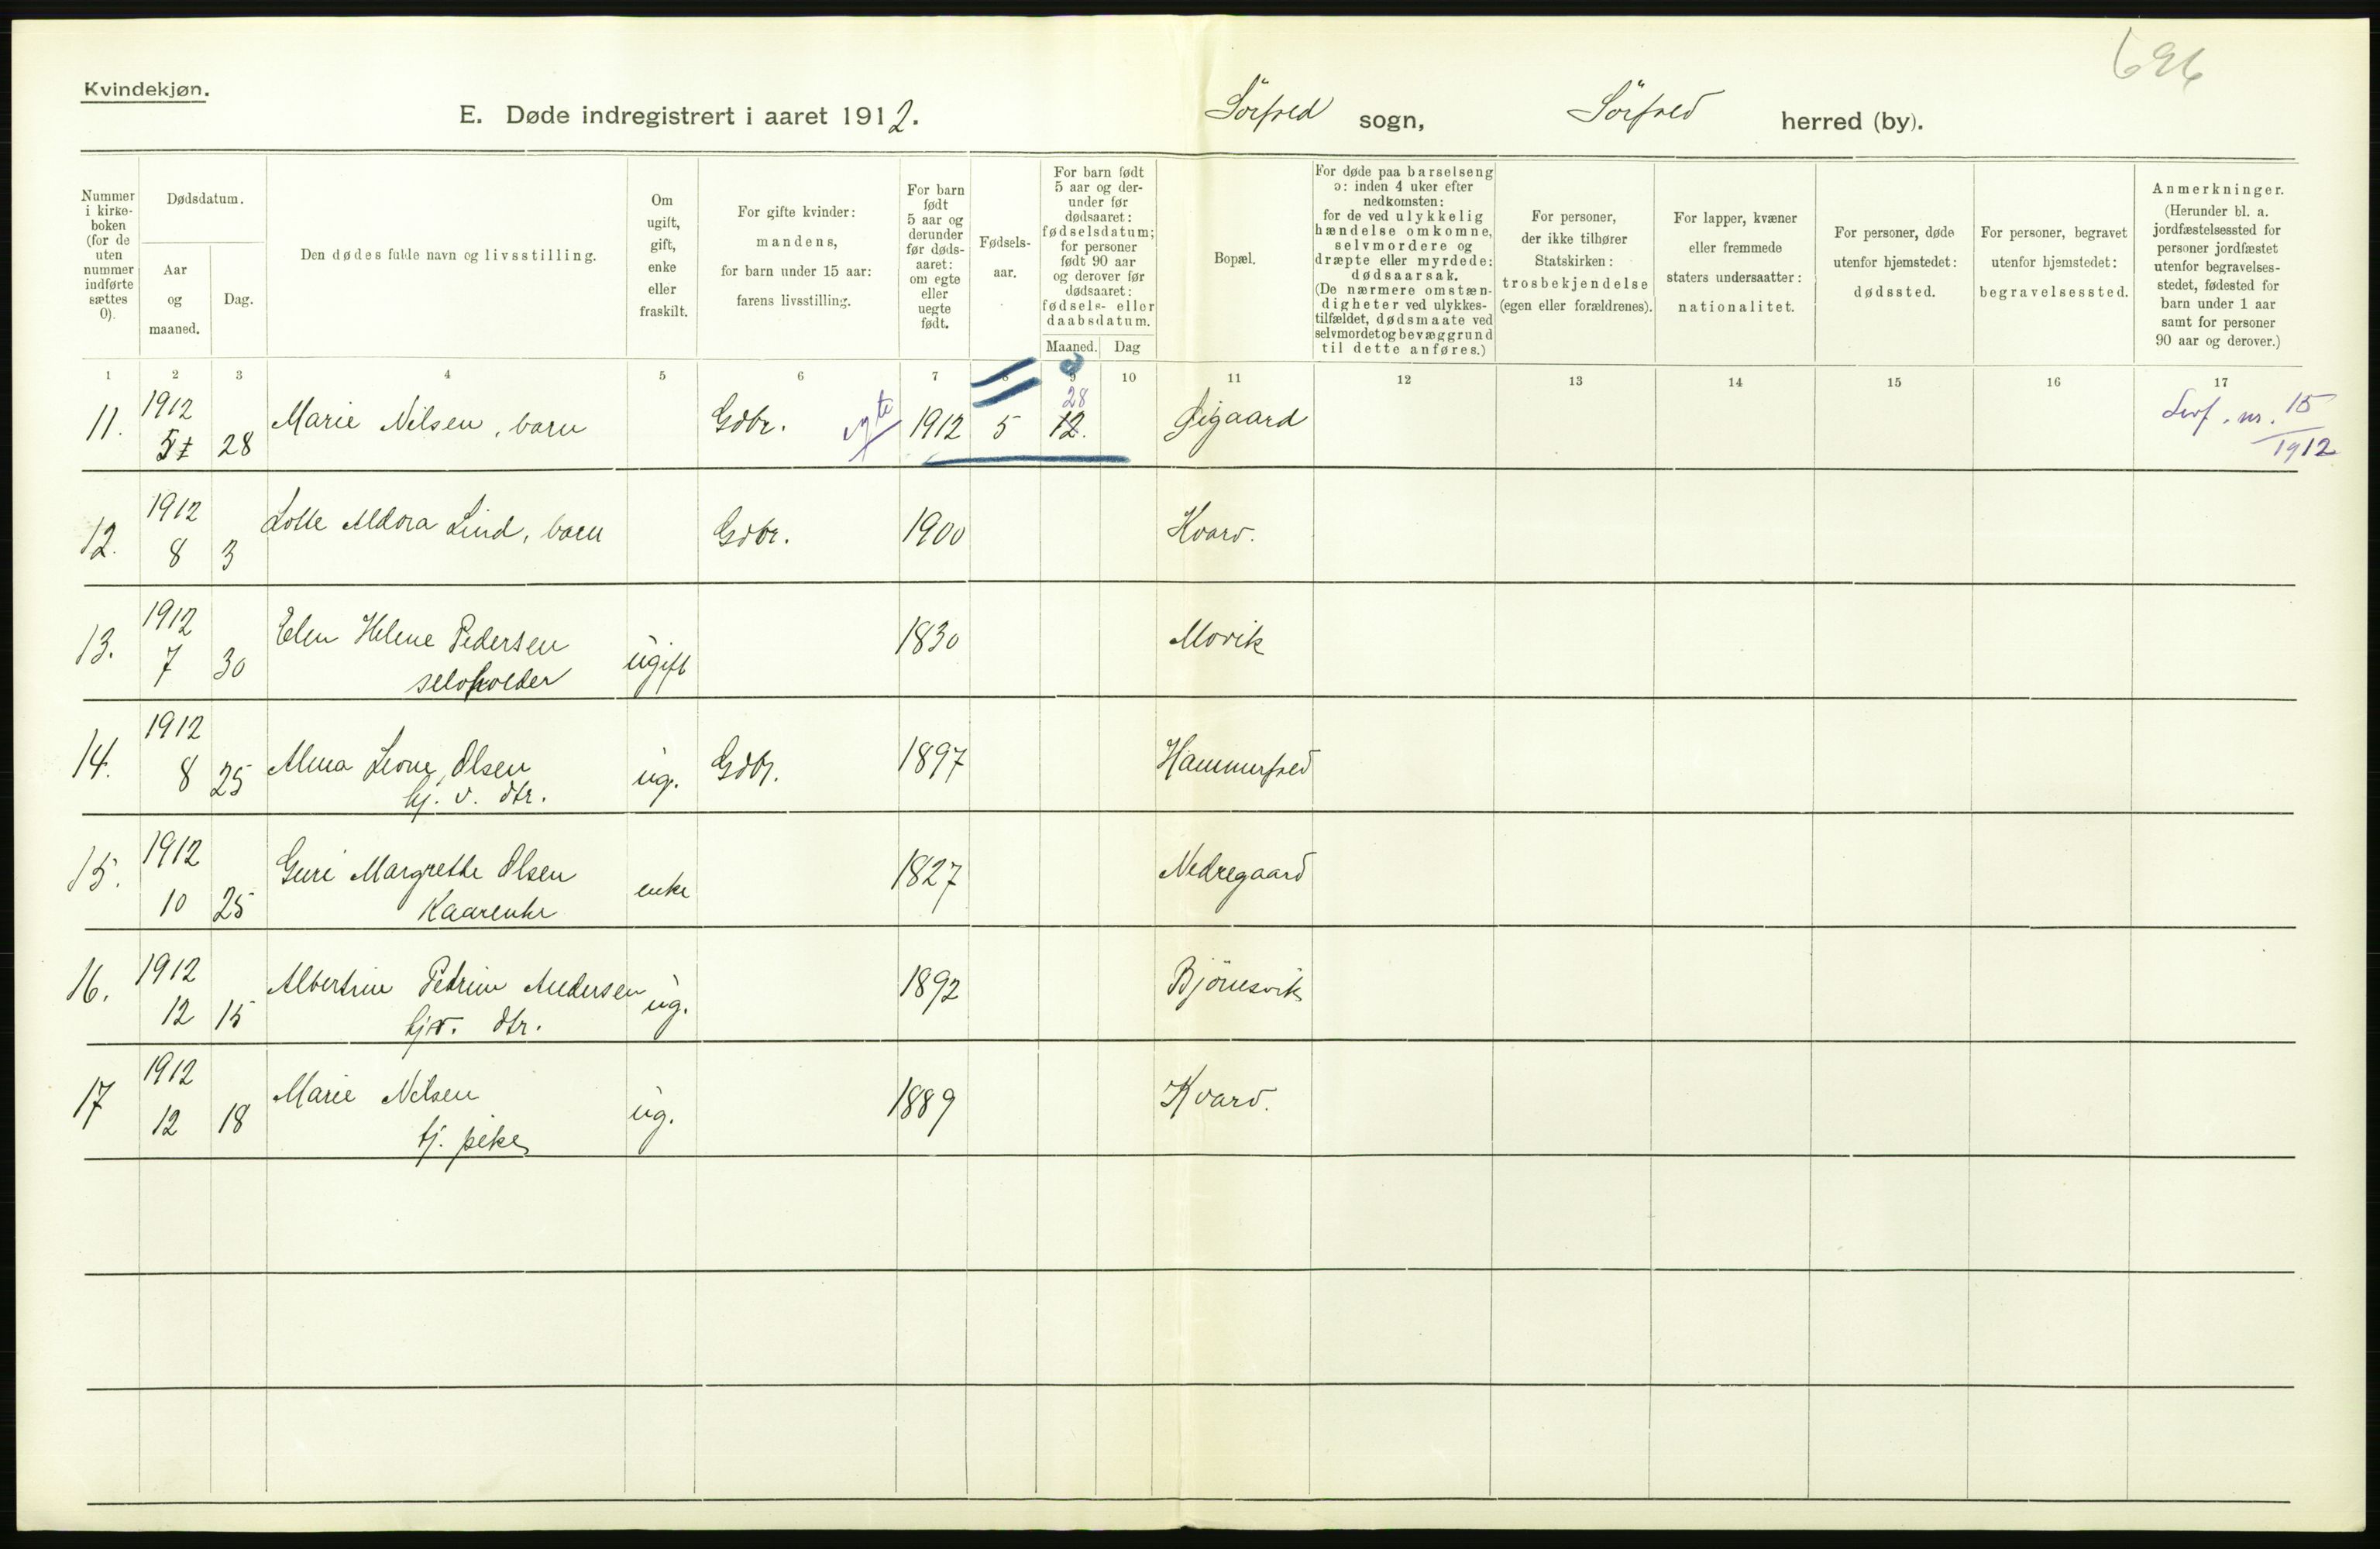 696
Kvindekjøn.
E. Døde indregistrert i aaret 1912. Sörfold sogn, Sörfold herred (by).
Nummer i kirke- boken (for de uten nummer indførte sættes 0).
Dødsdatum.
Aar og maaned.
Dag.
Den dødes fulde navn og livsstilling.
Om ugift, gift, enke eller fraskilt.
For gifte kvinder: mandens, for barn under 15 aar: farens livsstilling.
For barn født 5 aar og derunder før døds- aaret: om egte eller uegte født.
Fødsels- aar.
For barn født 5 aar og der- under før dødsaaret: fødselsdatum; for personer født 90 aar og derover før dødsaaret: fødsels- eller daabsdatum.
Maaned. Dag
Bopæl.
For døde paa barselseng ɔ: inden 4 uker efter nedkomsten: for de ved ulykkelig hændelse omkomne, selvmordere og dræpte eller myrdede: dødsaarsak. (De nærmere omstæn- digheter ved ulykkes- tilfældet, dødsmaate ved selvmordet og bevæggrund til dette anføres.)
For personer, der ikke tilhører Statskirken: trosbekjendelse (egen eller forældrenes).
For lapper, kvæner eller fremmede staters undersaatter: nationalitet.
For personer, døde utenfor hjemstedet: dødssted.
For personer, begravet utenfor hjemstedet: begravelsessted.
Anmerkninger. (Herunder bl. a. jordfæstelsessted for personer jordfæstet utenfor begravelses- stedet, fødested for barn under 1 aar samt for personer 90 aar og derover.)
1 2 3 4 5 6 7 8 9 10 11 12 13 14 15 16 17
11. 1912 5 28 Marie Nilsen, barn Gdbr. egte 1912 5 12. 28 Øigaard nr. 15/1912
12. 1912 8 3 Lotte Aldora Lind, barn Gdbr. 1900 Kvarv.
13. 1912 7 30 Elen Helene Pedersen ugift 1830 Movik
selvholder
14. 1912 8 25 Alma Leone Olsen ug. Gdbr. 1897 Hammerfald
hj. v. dtr.
15. 1912 10 25 Guri Margrethe Olsen enke 1827 Nedregaard
Kaarenke
16. 1912 12 15 Albertine Petrine Andersen ug. 1892 Björnsvik
hjv. dtr.
17 1912 12 18 Marie Nilsen ug. 1889 Kvarv.
tj. pike